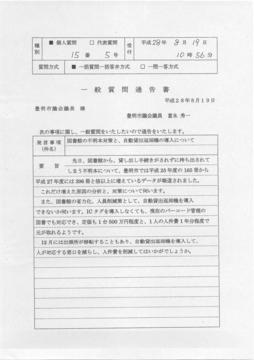 種別 ■ 個人質問 □ 代表質問 受付 平成28年8月19日
15番 5号 10時56分
質問方式 ■ 一括質問一括答弁方式 □ 一問一答方式
一般質問通告書
平成28年8月19日
豊明市議会議長 様
豊明市議会議員 富永 秀一
次の事項に関し、一般質問をいたしたいので通告をいたします。
発言事項(件名) 図書館の不明本対策と、自動貸出返却機の導入について
要旨 先日、図書館から、貸し出し手続きがされずに持ち出されて
しまう不明本について、豊明市では平成25年度の165冊から
平成27年度には396冊と倍以上に増えているデータが報道されました。
これだけ増えた原因の分析と、対策について伺います。
また、図書館の省力化、人員削減策として、自動貸出返却機を導入
できないか伺います。ICタグを導入しなくても、現在のバーコード管理の
図書でも対応でき、定価も1台500万円程度と、1人の人件費1年分程度で
元が取れるようです。
12月には出張所が移転することもあり、自動貸出返却機を導入して、
人が対応する窓口を減らし、人件費を削減してはいかがでしょうか。